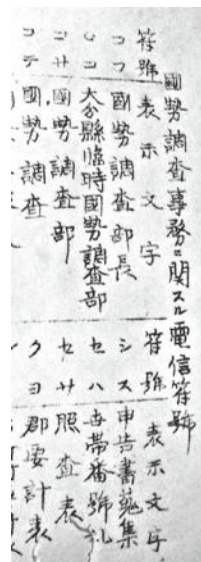 國勢調査事務ニ関スル電信符號
符號 表示文字
コフ 國勢調査部長
コ 大分縣臨時國勢調査部
コサ 國勢調査部
コテ 國勢調査
符號 表示文字
シス 申告書蒐集
セハ 世帯番號札
セサ 照査表
クヨ 郡要計表